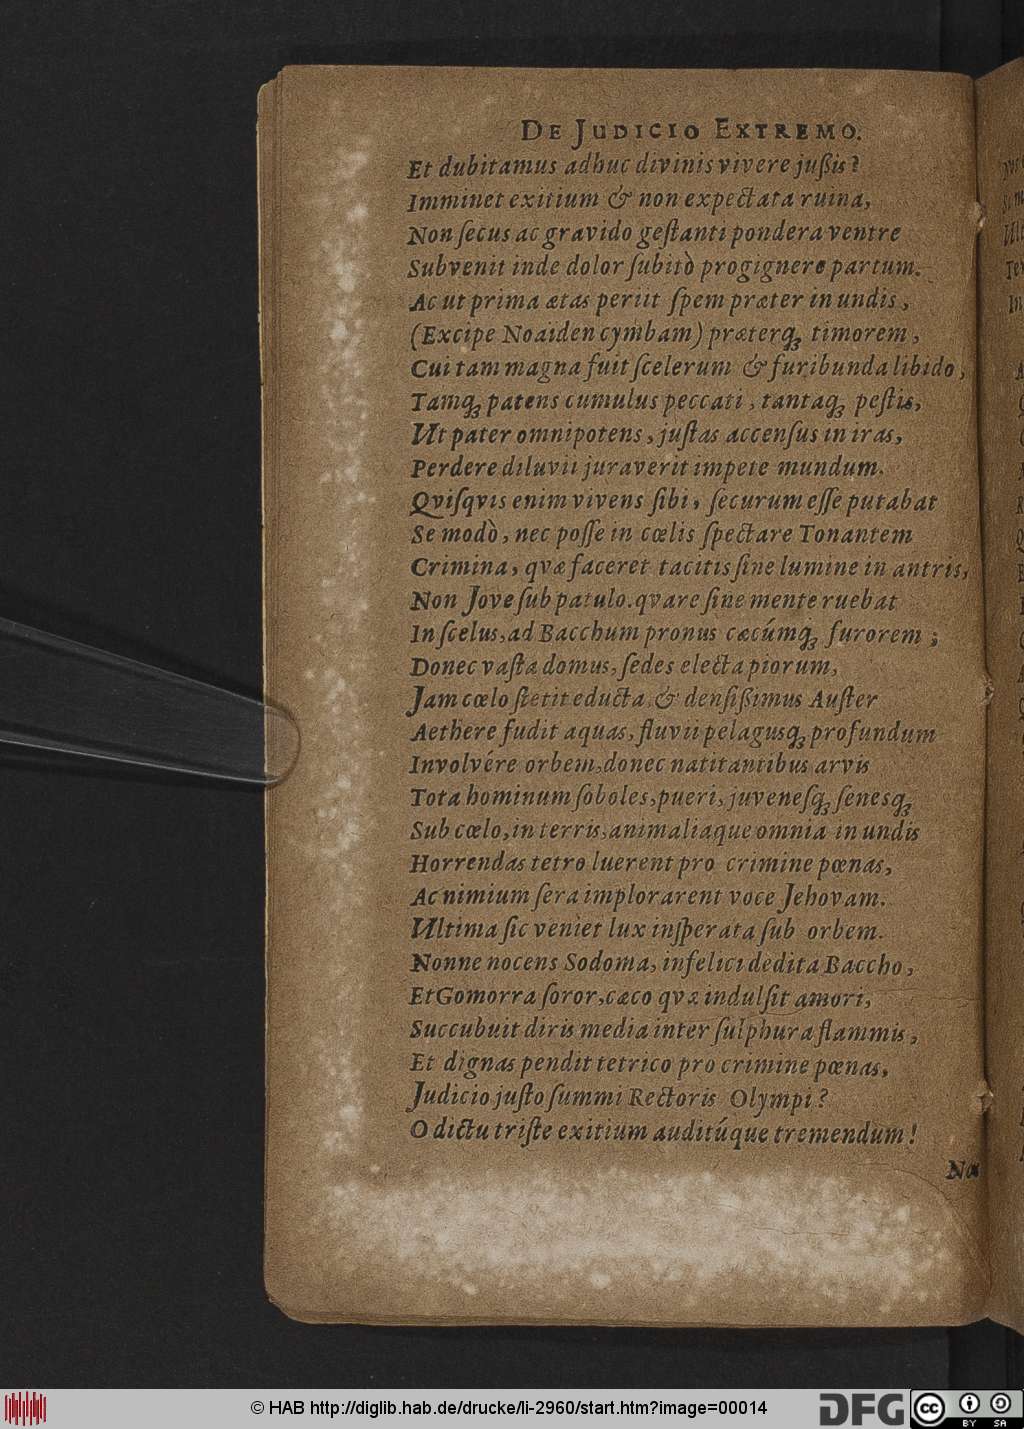 DE JUDICIO EXTREMO.
Et dubitamus adhuc divinis vivere jußis?
Imminet exitium & non expectata ruina,
Non ſecus ac gravido geſtanti pondera ventre
Subvenit inde dolor ſubitò progignere partum.
Ac ut prima ætas periit ſpem præter in undis,
(Excipe Noaiden cymbam) præterq́ꝫ timorem,
Cui tam magna fuit ſcelerum & furibunda libido,
Tamqꝫ patens cumulus peccati, tantaqꝫ peſtis,
Ut pater omnipotens, juſtas accenſus in iras,
Perdere diluvii juraverit impete mundum.
Qviſqvis enim vivens ſibi, ſecurum eſſe putabat
Se modò, nec poſſe in cœlis ſpectare Tonantem
Crimina, qvæ faceret tacitis ſine lumine in antris,
Non Jove ſub patulo. qvare ſine mente ruebat
In ſcelus, ad Bacchum pronus cæcúmqꝫ furorem;
Donec vaſta domus, ſedes electa piorum,
Jam cœlo ſtetit educta, & denſißimus Auſter
Aethere fudit aquas, fluvii pelagusqꝫ profundum
Involvére orbem, donec natitantibus arvis
Tota hominum ſoboles, pueri, juveneſqꝫ ſenesqꝫ
Sub cœlo, in terris, animaliaque omnia in undis
Horrendas tetro luerent pro crimine pœnas,
Ac nimium ſera implorarent voce Jehovam.
Ultima ſic veniet lux inſperata ſub orbem.
Nonne nocens Sodoma, infelici dedita Baccho,
Et Gomorra ſoror, cæco qvæ indulſit amori,
Succubuit diris media inter ſulphura flammis,
Et dignas pendit tetrico pro crimine pœnas,
Judicio juſto ſummi Rectoris Olympi?
O dictu triſte exitium auditúque tremendum!
Na
© HAB http://diglib.hab.de/drucke/li-2960/start.htm?image=00014
DFG
cc BY SA